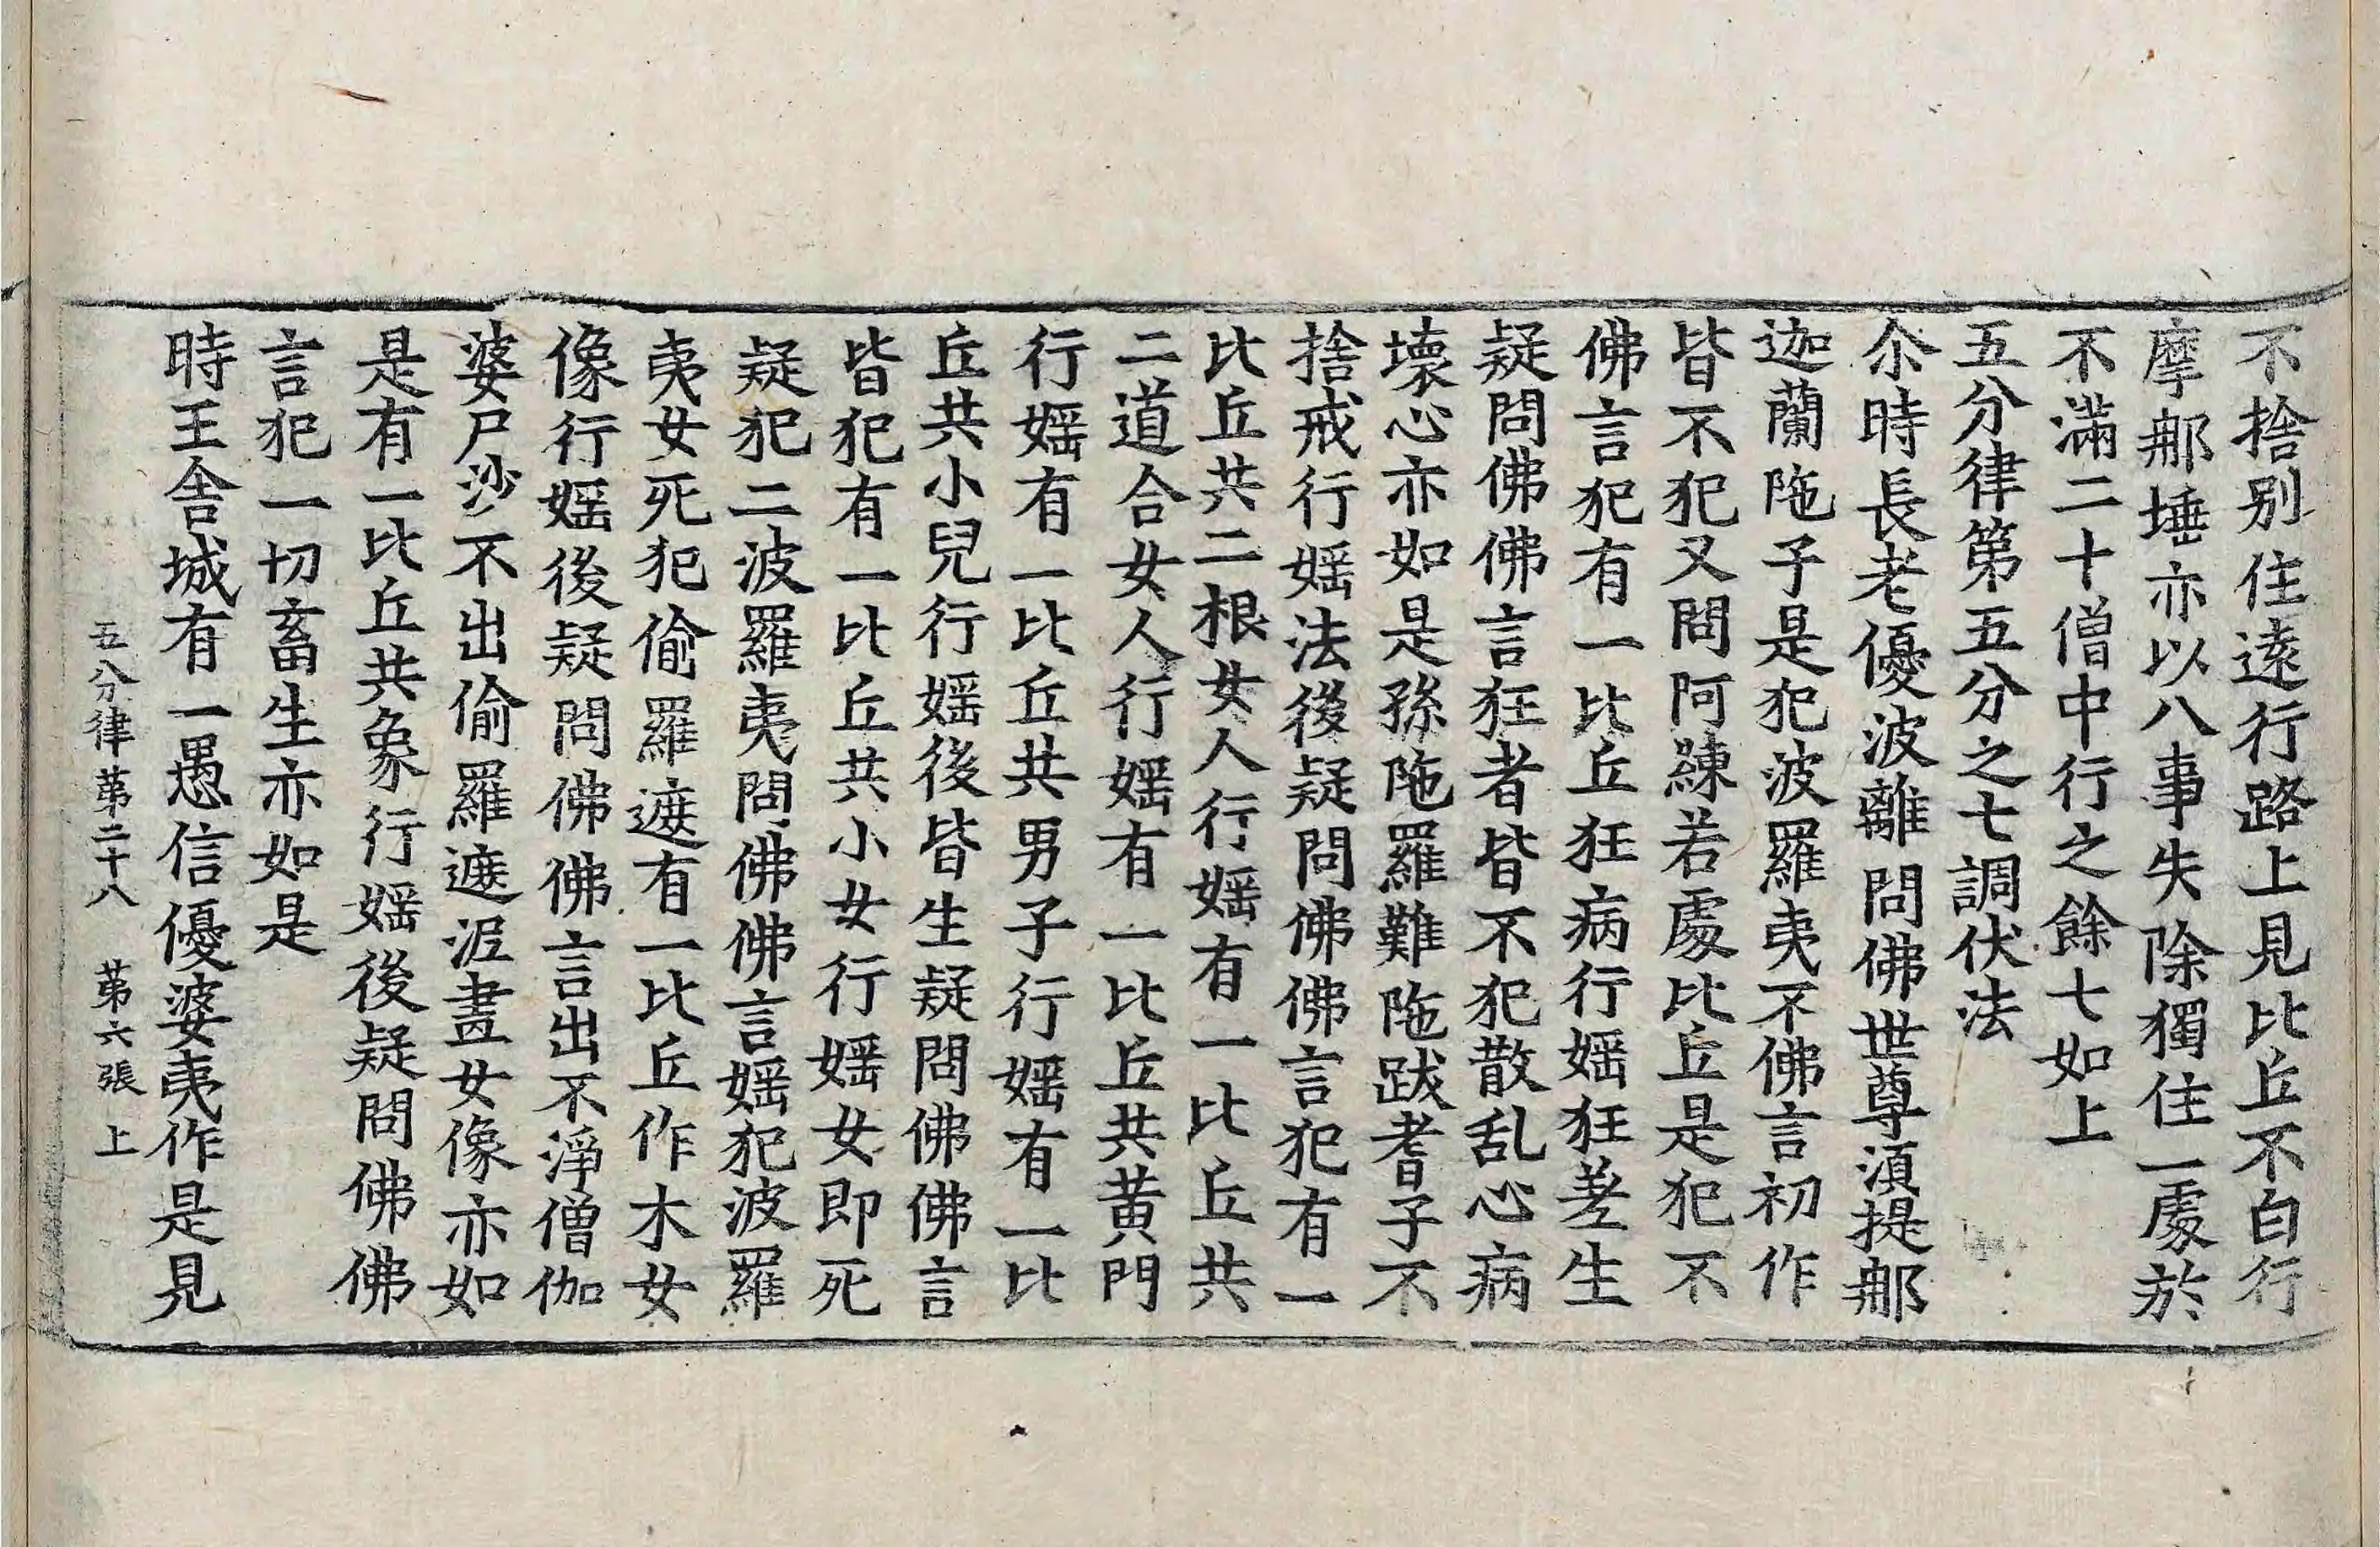 不捨别住遠行路上見比丘不白行
摩那埵亦以八事失除獨住一處於
不滿二十僧中行之餘七如上
五分律第五分之七調伏法
尒時長老優波離問佛世尊湏提那
迦蘭陁子是犯波羅夷不佛言初作
皆不犯又問阿練若處比丘是犯不
佛言犯有一比丘狂病行婬狂差生
疑問佛佛言狂者皆不犯散乱心病
壞心亦如是孫陁羅難陁跋耆子不
捨戒行婬法後疑問佛佛言犯有一
比丘共二根女人行婬有一比丘共
二道合女人行婬有一比丘共黄門
行婬有一比丘共男子行婬有一比
丘共小兒行婬後皆生疑問佛佛言
皆犯有一比丘共小女行婬女即死
疑犯二波羅夷問佛佛言婬犯波羅
夷女死犯偷羅遮有一比丘作木女
像行婬後疑問佛佛言出不淨僧伽
婆尸沙不出偷羅遮泥畫女像亦如
是有一比丘共象行婬後疑問佛佛
言犯一切畜生亦如是
時王舍城有一愚信優婆夷作是見
五分律苐二十八　苐六張　上